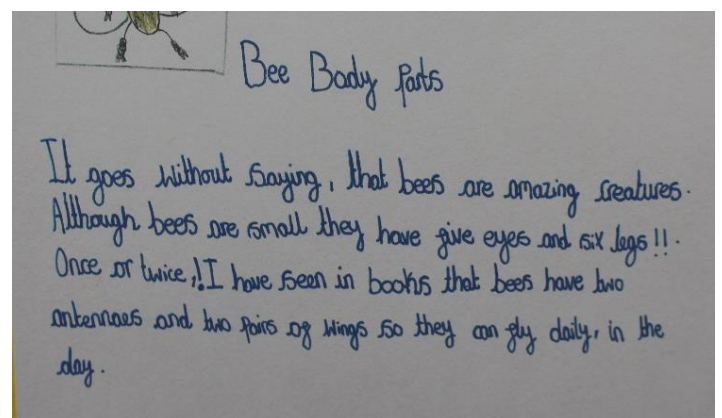 Bee Body Parts
It goes without saying, that bees are amazing creatures.
Although bees are small they have five eyes and six legs!!.
Once or twice,!I have seen in books that bees have two
antennaes and two pairs of wings so they can fly daily, in the
day.